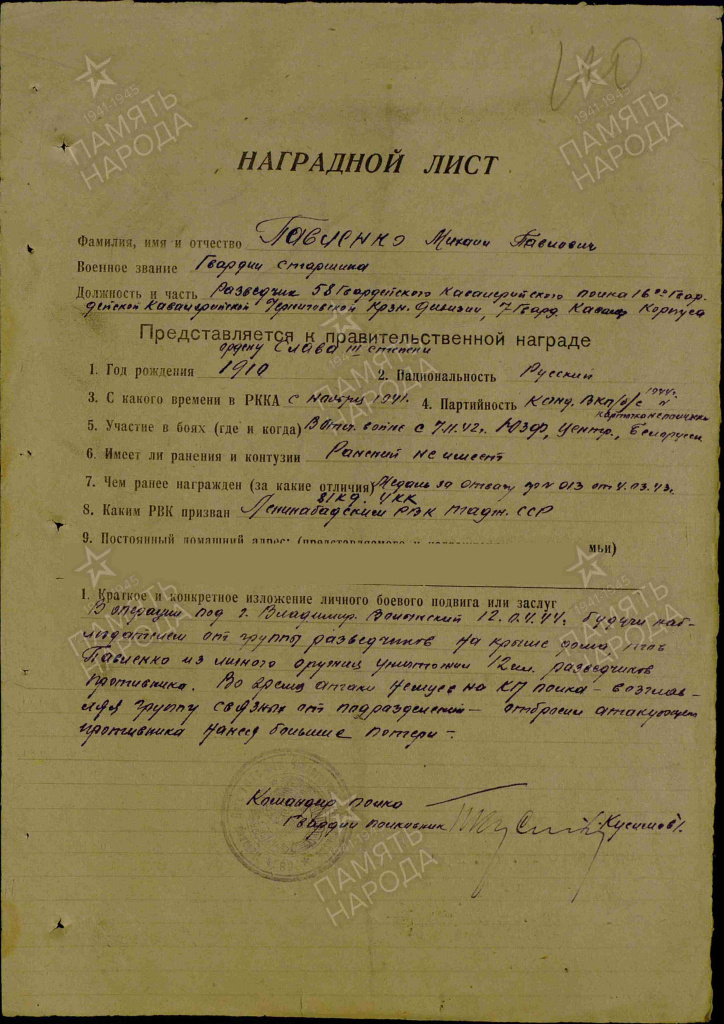 НАГРАДНОЙ ЛИСТ
Фамилия, имя и отчество Павленко Михаил Павлович
Военное звание Гвардии старшина
Должность и часть Разведчик 58 Гвардейского Кавалерийского полка 16ой Гвар-
дейской Кавалерийской Черниговской Крзн. дивизии, 7 Гвард. Кавалер Корпуса
Представляется к правительственной награде
ордену Слава III степени
1. Год рождения 1910 2. Национальность Русский
3. С какого времени в РККА с ноября 1941. 4. Партийность Канд. ВКП/б/ с 1944г.
5. Участие в боях (где и когда) В Отеч. войне с 7.11.42г. ЮЗФ, Центр., Белорусск
6. Имеет ли ранения и контузии Ранений не имеет
7. Чем ранее награжден (за какие отличия) Медаль за отвагу пр N 013 от 4.03.43г.
81 КД. 4 КК
8. Каким РВК призван Ленинабадским РВК Тадж. ССР
9. Постоянный домашний адрес: (представляемого к мьи)
1. Краткое и конкретное изложение личного боевого подвига или заслуг
В операции под г. Владимир. Волынский 12.04.44г. будучи наб-
людателем от группы разведчиков на крыше дома, тов
Павленко из личного оружия уничтожил 12 чел. разведчиков
противника. Во время атаки немцев на КП полка – возглав-
ляя группу связных от подразделений – отбросил атакующего
противника нанеся большие потери –
Командир полка
Гвардии полковник /Кусимов/.
1941-1945
ПАМЯТЬ
НАРОДА
1941-1945
ПАМЯТЬ
НАРОДА
ПАМЯТЬ
НАРОДА
1941-1945
ПАМЯТЬ
НАРОДА
1941-1945
ПАМЯТЬ
НАРОДА
ПАМЯТЬ
НАРОДА